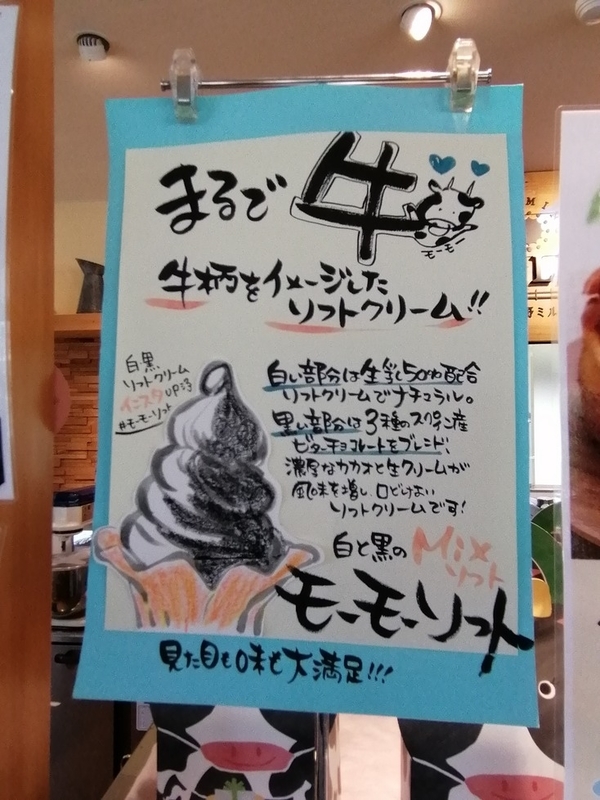 まるで牛
モーモー
牛柄をイメージした
ソフトクリーム!!
白黒
ソフトクリーム
インスタUP済
#モーモーソフト
白い部分は生乳50%配合
ソフトクリームでナチュラル。
黒い部分は3種のスペイン産
ビターチョコレートをブレンド、
濃厚なカカオと生クリームが
風味を増し、口どけよい
ソフトクリームです!
白と黒のMix
ソフト
モーモーソフト
見た目も味も大満足!!!